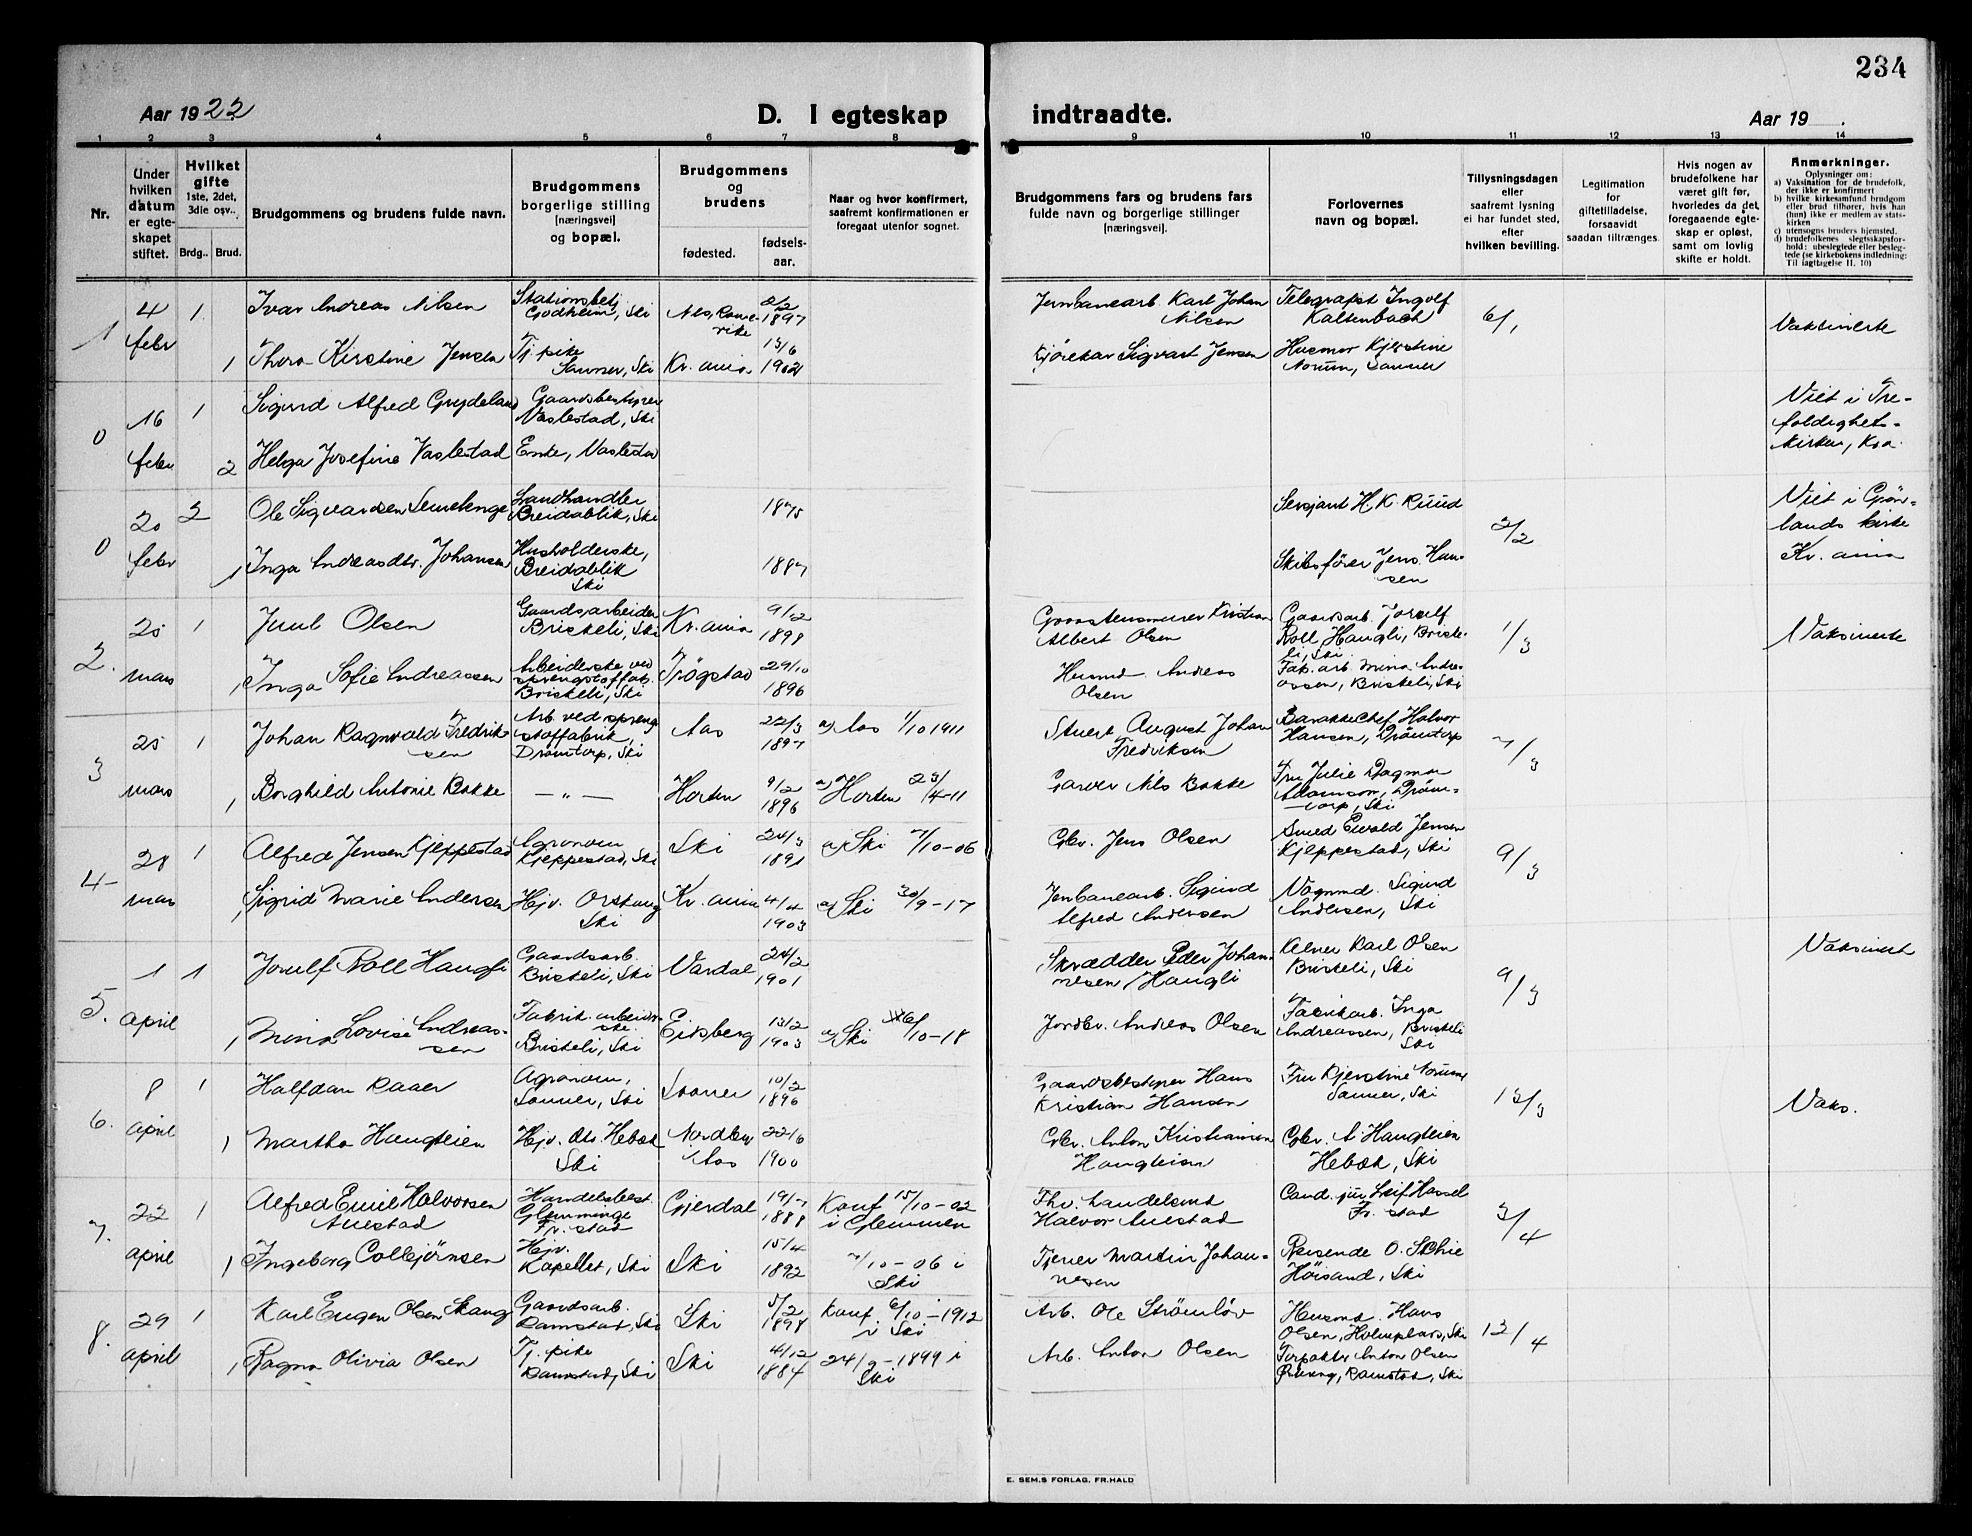 234
Aar 1922.
D. I egteskap indtraadte.
Aar 19 .
1 2 3 4 5 6 7 8 9 10 11 12 13 14
Nr.
Under
hvilken
datum
er egte-
skapet
stiftet.
Hvilket
gifte
1ste, 2det,
3die osv..
Brdg.. Brud.
Brudgommens og brudens fulde navn.
Brudgommens
borgerlige stilling
[næringsvei]
og bopæl.
Brudgommens
og
brudens
fødested.
fødsels-
aar.
Naar og hvor konfirmert,
saafremt konfirmationen er
foregaat utenfor sognet.
Brudgommens fars og brudens fars
fulde navn og borgerlige stillinger
[næringsvei].
Forlovernes
navn og bopæl.
Tillysningsdagen
eller
saafremt lysning
ei har fundet sted,
efter
hvilken bevilling.
Legitimation
for
giftetilladelse,
forsaavidt
saadan tiltrænges.
Hvis nogen av
brudefolkene har
været gift før,
hvorledes da det
foregaaende egte-
skap er opløst,
samt om lovlig
skifte er holdt.
Anmerkninger.
Oplysninger om:
a) Vaksination for de brudefolk,
der ikke er konfirmert
b) hvilke kirkesamfund brudgom
eller brud tilhører, hvis han
(hun) ikke er medlem av stats-
kirken
c) utensogns bruders hjemsted.
d) brudefolkenes slegtsskapsfor-
hold: ubeslegtede eller besleg-
tede (se kirkebokens indledning:
Til iagttagelse II. 10)
1
4
febr
1
Ivar Andreas Nilsen
Stationsbetj.
Godheim, Ski
Nes, Rome-
rike
1897
Jernbanearb. Karl Johan
Nilsen
Telegrafist Ingolf
Kaltenbach
6/1
Vaksinerte
1
Thora Kirstine Jensen
Tj. pike
Sanner, Ski
Kr.ania
13/6
1902
Kjørekar Sigvart Jensen
Husmor Kjerstine
Norum, Sanner
0
16
febr
1
Sigurd Alfred Grydeland
Gaardsbestyrer
Vaslestad, Ski
Viet i Tre-
foldighets-
kirken, Kra.
2
Helga Josefine Vaslestad
Enke, Vaslestad
0
20
febr
2
Ole Sigvardsen Semelenge
Landhandler
Breidablik, Ski
1875
Sersjant H K Ruud
2/2
Viet i Grøn-
lands kirke
Kr.ania
1
Inga Andreasdtr. Johansen
Husholderske,
Breidablik
Ski
1887
Skibsfører Jens Han-
sen
2.
25
mars
1
Juul Olsen
Gaardsarbeider
Briskeli, Ski
Kr.ania
9/2
1898
Graastensmurer Kristian
Albert Olsen
Gaardsarb. Jorulf
Roll Haugli, Briske-
li, Ski
1/3
Vaksinerte
1
Inga Sofie Andreassen
Arbeiderske ved
sprengstoffab.
Briskeli, Ski
Trøgstad
29/10
1896
Husmd. Andreas
Olsen
Fab. arb. Mina Andre-
assen, Briskeli, Ski
3
25
mars
1
Johan Ragnvald Fredrik-
sen
Arb. ved spreng-
stoffabrik,
Drømtorp, Ski
Aas
22/3
1897
a) Aas 1/10 1911
Stuert August Johan
Fredriksen
Barakkechef Halvor
Hansen, Drømtorp
7/3
1
Borghild Antonie Bakke
— „ —
Horten
9/2
1896
a) Horten 23/4-11
Garver Nils Bakke
Fru Julie Dagmar
Adamson, Drøm-
torp, Ski
4
28
mars
1
Alfred Jensen Kjeppestad
Agronom
Kjeppestad, Ski
Ski
24/3
1891
a) Ski 7/10-06
Gbr. Jens Olsen
Smed Ewald Jensen
Kjeppestad, Ski
9/3
1
Sigrid Marie Andersen
Hjv. Orskaug
Ski
Kr.ania
4/4
1903
a) Ski 30/9-17
Jernbanearb. Sigurd
Alfred Andersen
Vognmd. Sigurd
Andersen, Ski
5.
1
april
1
Jorulf Roll Haugli
Gaardsarb.
Briskeli, Ski
Vardal
24/2
1901
Skrædder Peder Johan-
nesen Haugli
Kelner Karl Olsen
Briskeli, Ski
9/3
Vaksinert
1
Mina Lovise Andreas-
sen
Fabrik. arbeider-
ske.
Briskeli, Ski
Eidsberg
13/2
1903
a) Ski 6/10-18
Jordbr. Andreas Olsen
Fabrikarb. Inga
Andreassen, Briskeli
Ski
6.
8
april
1
Halfdan Raaer
Agronom,
Sanner, Ski
10/2
1896
Gaardsbestyrer Hans
Kristian Hansen
Fru Kjerstine Norum
Sanner, Ski
13/3
Vaks.
1
Martha Haugteien
Hjv. Ots. Hebæk
Ski
Nordby
Aas
22/6
1900
Gbr. Anton Kristiansen
Haugteien
Gbr. A. Haugteien
Hebæk, Ski
7.
22
april
1
Alfred Emil Halvorsen
Auestad
Handelsbest.
Glemminge
Fr.stad
Gjerdal
19/7
1888
Konf 15/10-02
i Glemmen
Fhv. handelsmd
Halvor Auestad
Cand. jur Leif Hassel
Fr.stad
3/4
1
Ingeborg Colbjørnsen
Hjv.
Kapellet, Ski
Ski
15/4
1892
7/10-06 i
Ski
Tjener Martin Johan-
nesen
Reisende O. Schie
Høisand, Ski
8.
29
april
1
Karl Eugen Olsen Skaug
Gaardsarb.
Ramstad, Ski
Ski
5/2
1898
Konf 6/10-1912
i Ski
Arb. Ole Strømløv
Husmd. Hans
Olsen, Holmplads, Ski
13/4
1
Ragna Olivia Olsen
Tj. pike
Ramstad, Ski
Ski
4/12
1884
24/9-1899 i
Ski
Arb. Anton Olsen
Forpakter Anton Olsen
Ramstad, Ski
E. SEM.S FORLAG, FR.HALD